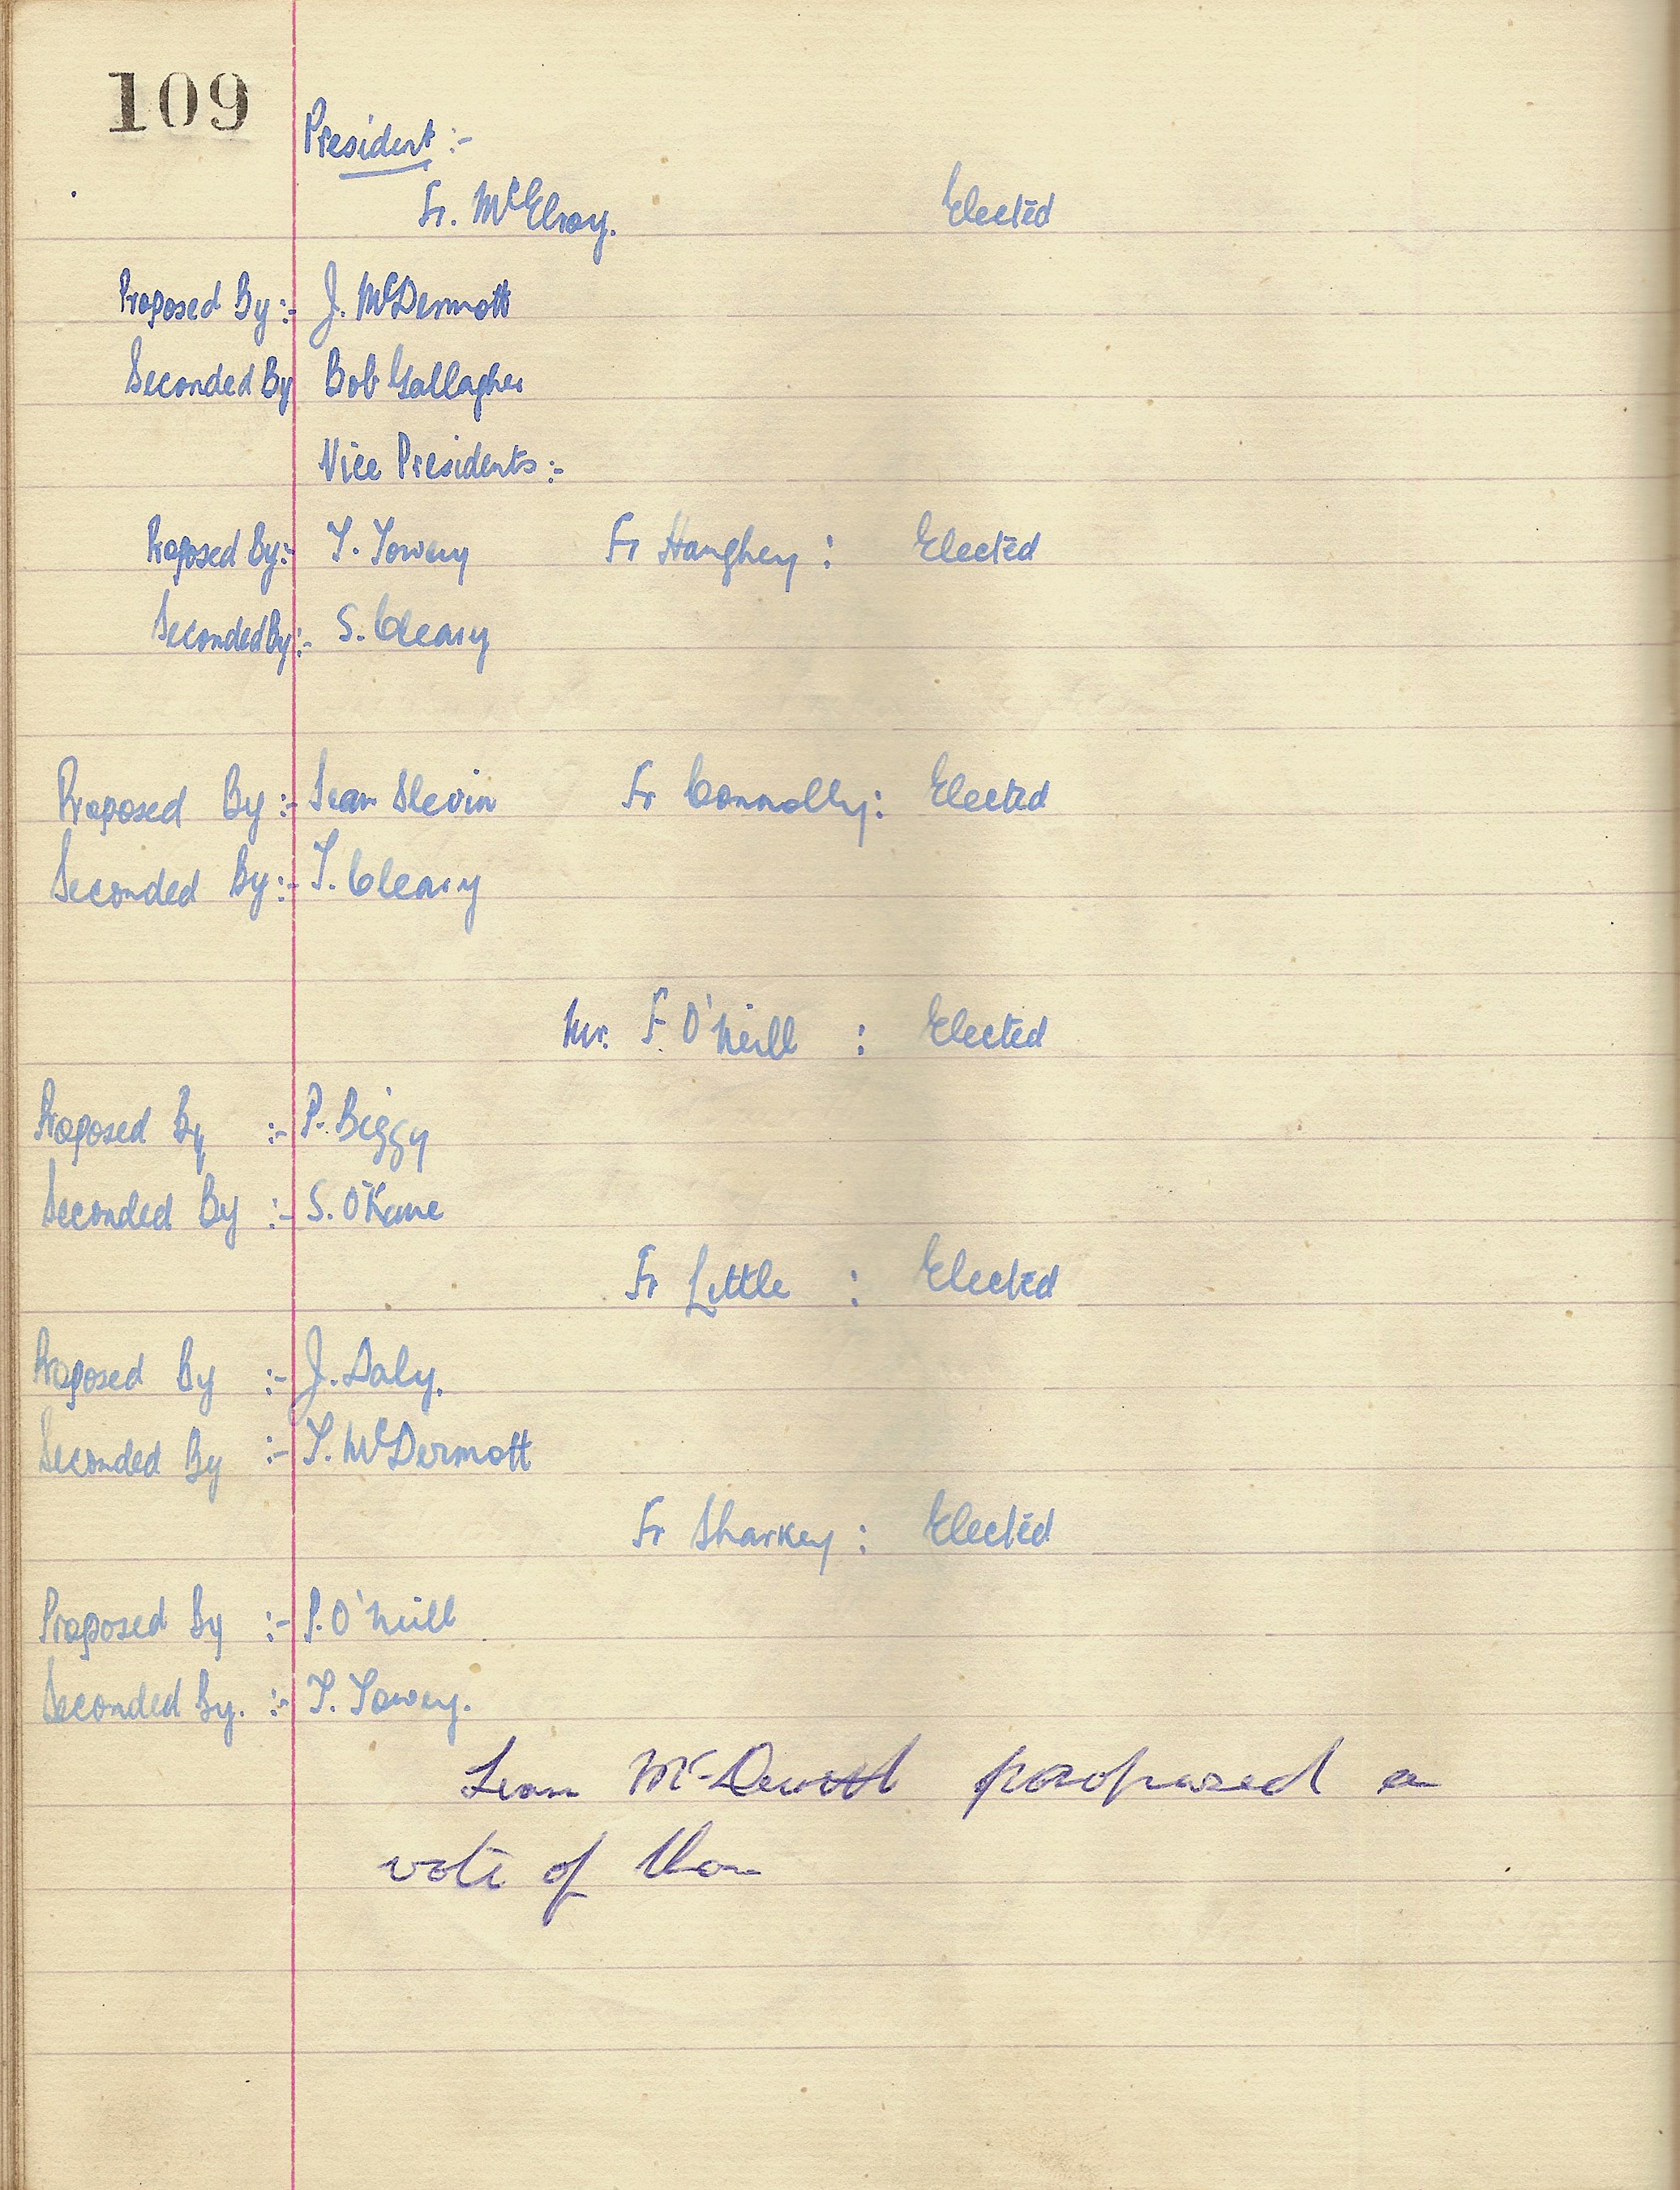 109
President :-
Fr. McElroy. Elected
Proposed By :- J. McDermott
Seconded By Bob Gallagher
Vice Presidents :-
Proposed By :- T. Towey Fr Haughey : Elected
Seconded By :- S. Cleary
Proposed By :- Sean Slevin Fr Connolly : Elected
Seconded By :- T. Cleary
Mr. F O'Neill : Elected
Proposed By :- P. Biggy
Seconded By :- S. O'Kane
Fr Little : Elected
Proposed By :- J. Daly.
Seconded By :- T. McDermott
Fr Sharkey : Elected
Proposed By :- P. O'Neill
Seconded By. :- T. Towey.
Sean proposed a
vote of than